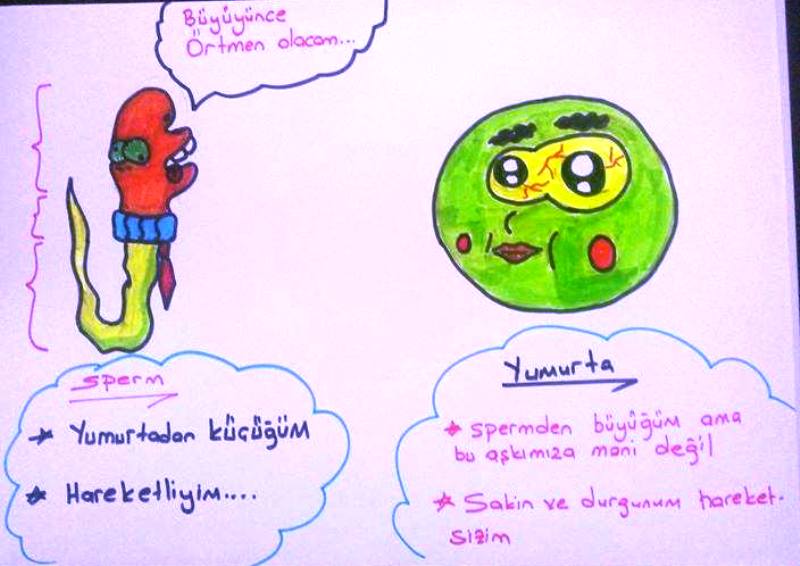 Büyüyünce
Örtmen olacam...
Sperm
Yumurtadan küçüğüm
Hareketliyim....
Yumurta
spermden büyüğüm ama
bu aşkımıza mani değil
Sakin ve durgunum hareket-
sizim